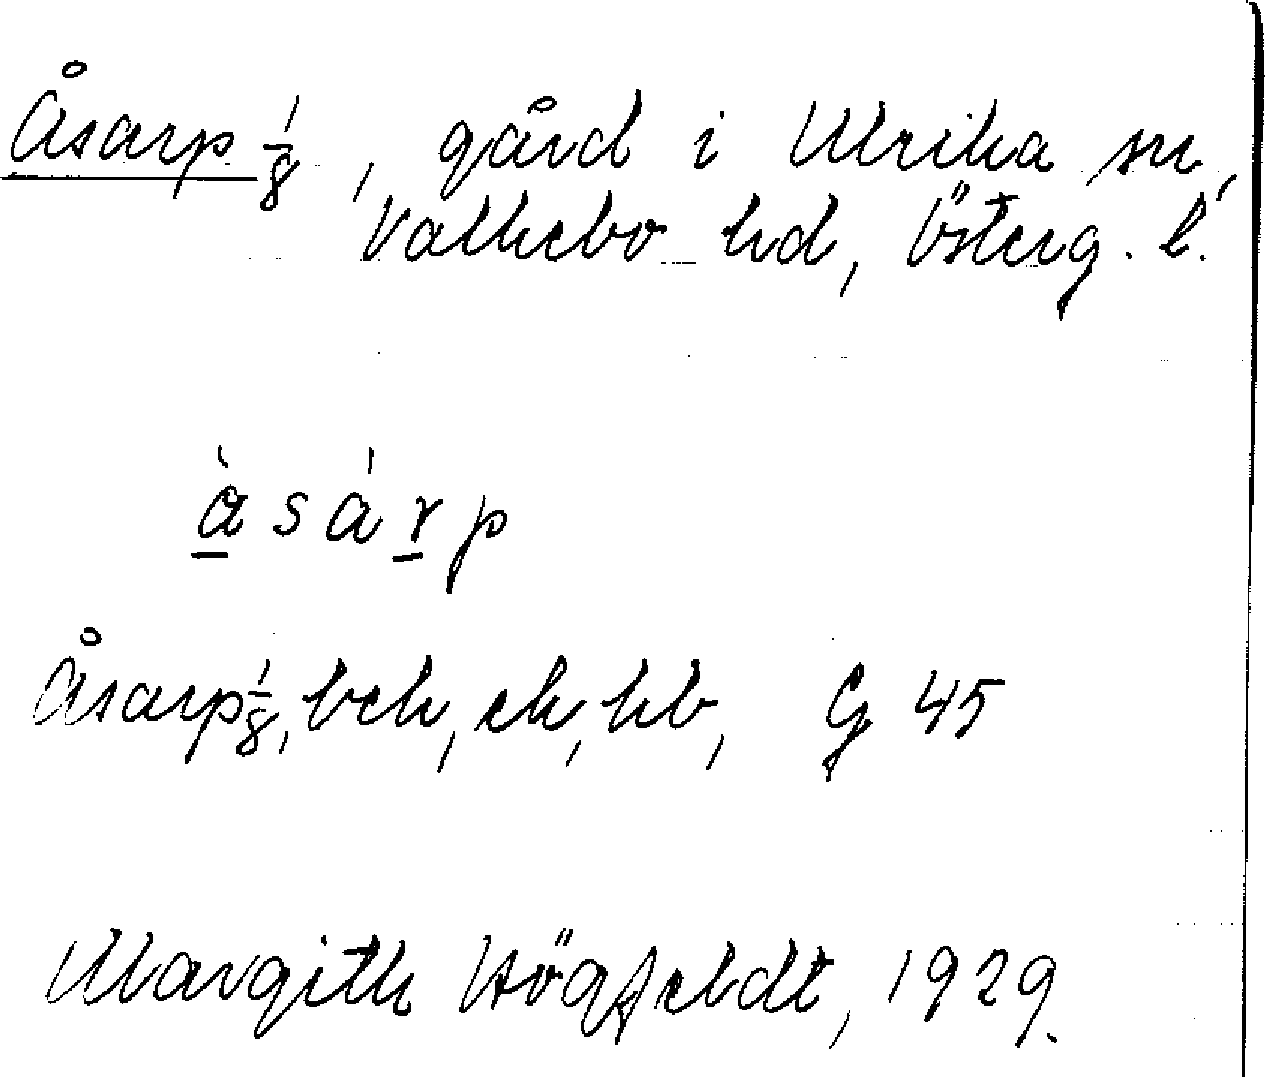 Åsarp 1/8, gård i Ulrika sn,
Valkebo hd, Österg. l.
å̱̀ s á ṟ p
Åsarp 1/8, bch, ek, hb, G 45
Margith Högfeldt, 1929.